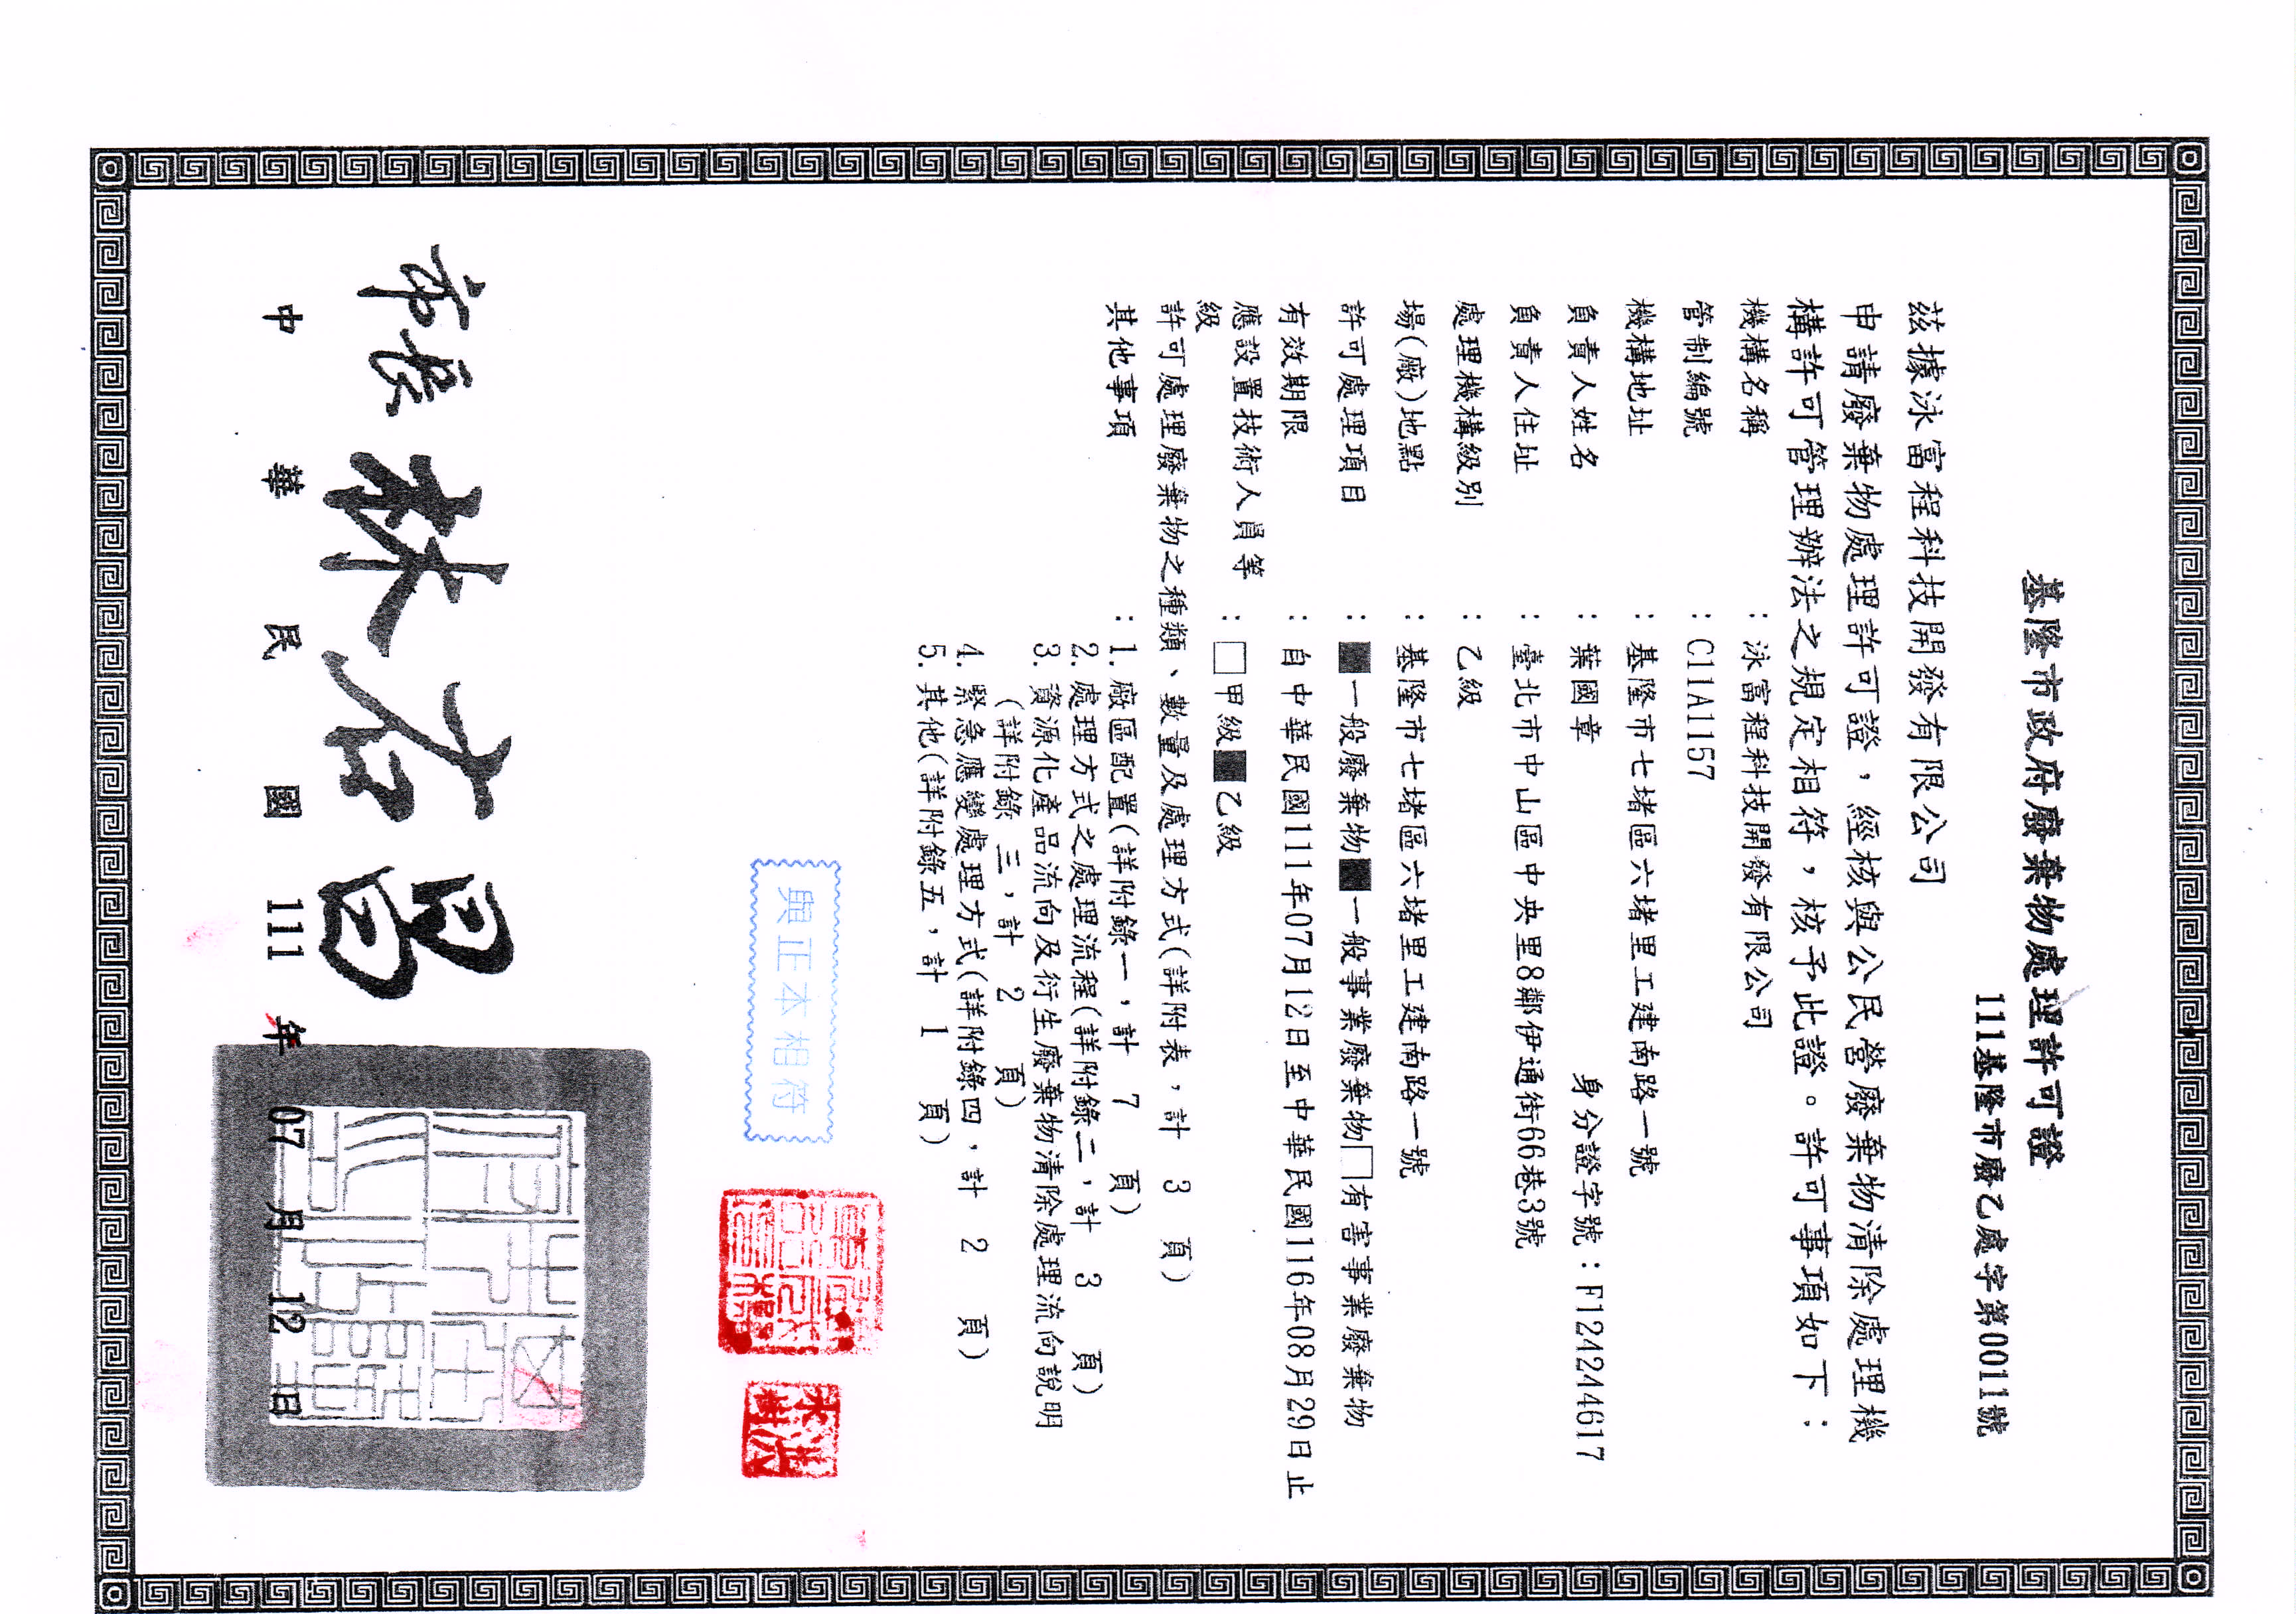 基隆市政府廢棄物處理許可證
111基隆市廢乙處字第0011號
茲據泳富程科技開發有限公司
申請廢棄物處理許可證，經核與公民營廢棄物清除處理機
構許可管理辦法之規定相符，核予此證。許可事項如下：
機構名稱：泳富程科技開發有限公司
管制編號：C11A1157
機構地址：基隆市七堵區六堵里工建南路一號
負責人姓名：葉國章 身分證字號：F124244617
負責人住址：臺北市中山區中央里8鄰伊通街66巷3號
處理機構級別：乙級
場(廠)地點：基隆市七堵區六堵里工建南路一號
許可處理項目：■一般廢棄物■一般事業廢棄物□有害事業廢棄物
有效期限：自中華民國111年07月12日至中華民國116年08月29日止
應設置技術人員等
級：□甲級■乙級
許可處理廢棄物之種類、數量及處理方式(詳附表，計 3 頁)
其他事項：1.廠區配置(詳附錄一，計 7 頁)
2.處理方式之處理流程(詳附錄二，計 3 頁)
3.資源化產品流向及衍生廢棄物清除處理流向說明
(詳附錄 三，計 2 頁)
4.緊急應變處理方式(詳附錄四，計 2 頁)
5.其他(詳附錄五，計 1 頁)
與正本相符
市長 林右昌
中華民國 111 年 07 月 12 日